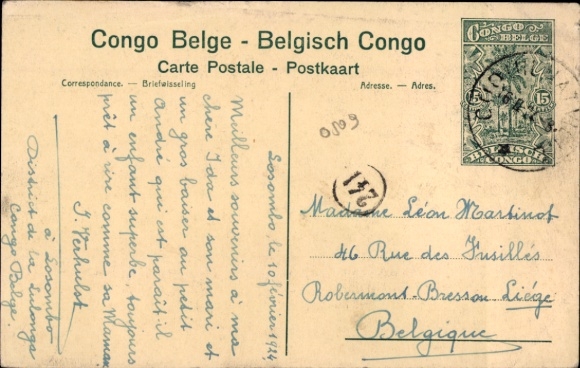 Congo Belge - Belgisch Congo
Carte Postale - Postkaart
Correspondance. — Briefwisseling
Adresse. — Adres.
CONGO
BELGE
15
15
BELGISCH
CONGO
6050
241
Losombo le 10 février 1924
Meilleurs souvenirs à ma
chère Ida et son mari et
un gros baiser au petit
André qui est paraît-il
un enfant superbe, toujours
prêt à rire comme sa Maman
J. Verhulst
à Losombo
District de la Lulonga
Congo Belge.
Madame Léon Martinot
46 Rue des Fusillés
Robermont-Bressou Liége
Belgique